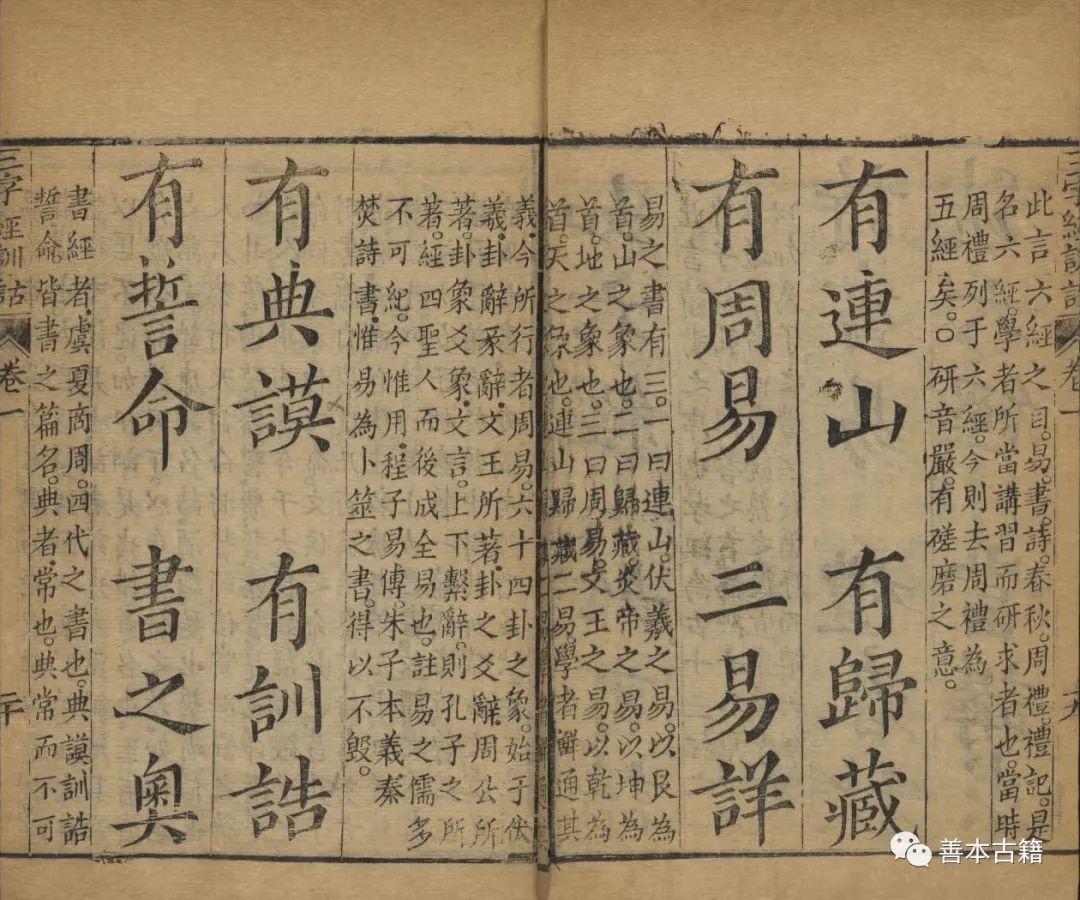 三字經訓詁 卷一
此言六經之目。易。書。詩。春秋。周禮。禮記。是
名六經。學者所當講習而研求者也。當時
周禮列于六經。今則去周禮為
五經矣。○研音嚴。有磋磨之意。
有連山 有歸藏
有周易 三易詳
易之書有三。一曰連山。伏羲之易。以艮為
首。山之象也。二曰歸藏。炎帝之易。以坤為
首。地之象也。三曰周易。文王之易。以乾為
首。天之象也。連山歸藏二易。學者鮮通其
義。今所行者周易。六十四卦之象。始于伏
羲。卦辭彖辭。文王所著。卦之爻辭周公所
著。卦象爻象。文言。上下繫辭。則孔子之所
著。經四聖人而後成全易也。註易之儒多
不可紀。今惟用。程子易傳。朱子本義秦
焚詩書。惟易為卜筮之書。得以不毀。
有典謨 有訓誥
有誓命 書之奧
書經者。虞夏商周。四代之書也。典謨訓誥
誓命。皆書之篇名。典者。常也。典常而不可
三字經訓詁 卷一
善本古籍